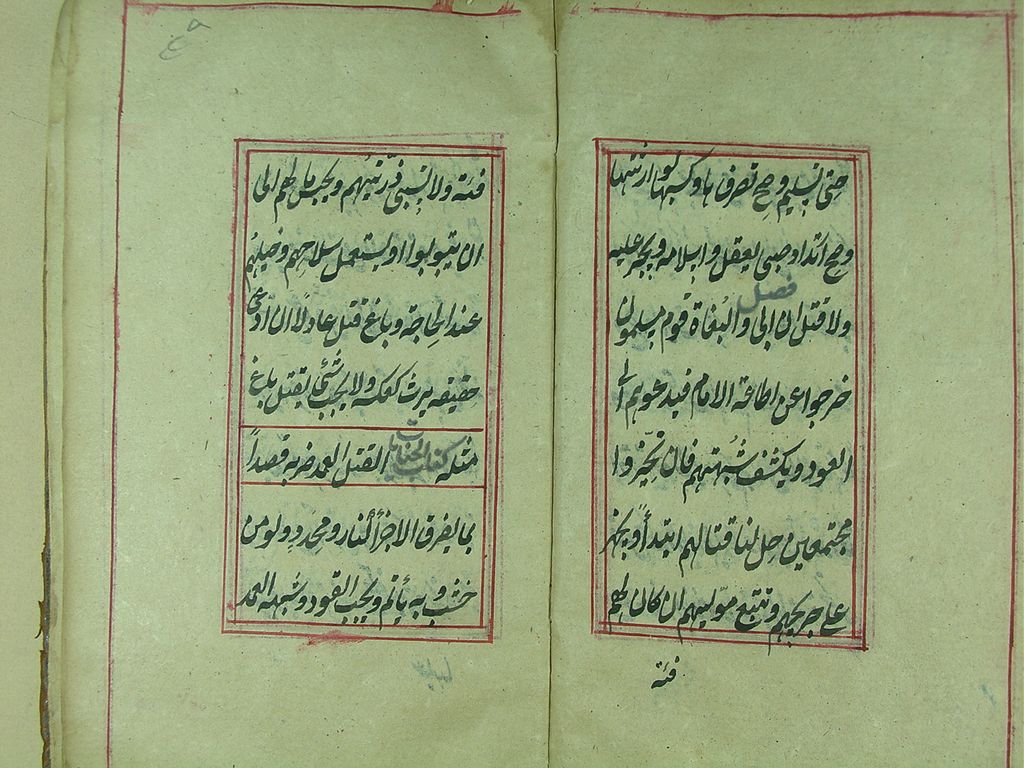 حتى تسلم وصح تصرف ها وكسبها لو ارتدتها
وصح ارتداد صبى يعقل واسلامه ويجبر عليه
ولا قتل ان ابى فصل والبغاة قوم مسلمون
خرجوا عن اطاعة الامام فيدعوهم الى
العود ويكشف شبهتهم فان تحيزوا
مجتمعين حل لنا قتالهم ابتدأ ويجهز
على جريحهم ونتبع موليهم ان كان لهم
فئة
فئة ولا نسبى ذريتهم ويحبس مالهم الى
ان يتوبوا او يستعمل سلاحهم وخيلهم
عند الحاجة وباغ قتل عادلا ان ادعى
حقيقه يرث كعكسه ولا يجب شئ بقتل باغ
مثله كتاب الجنايات القتل العمد ضربه قصداً
بما يفرق الاجزأ كنار ومحدد ولو من
خشب و به يأثم ويجب القود وشبهه العمد